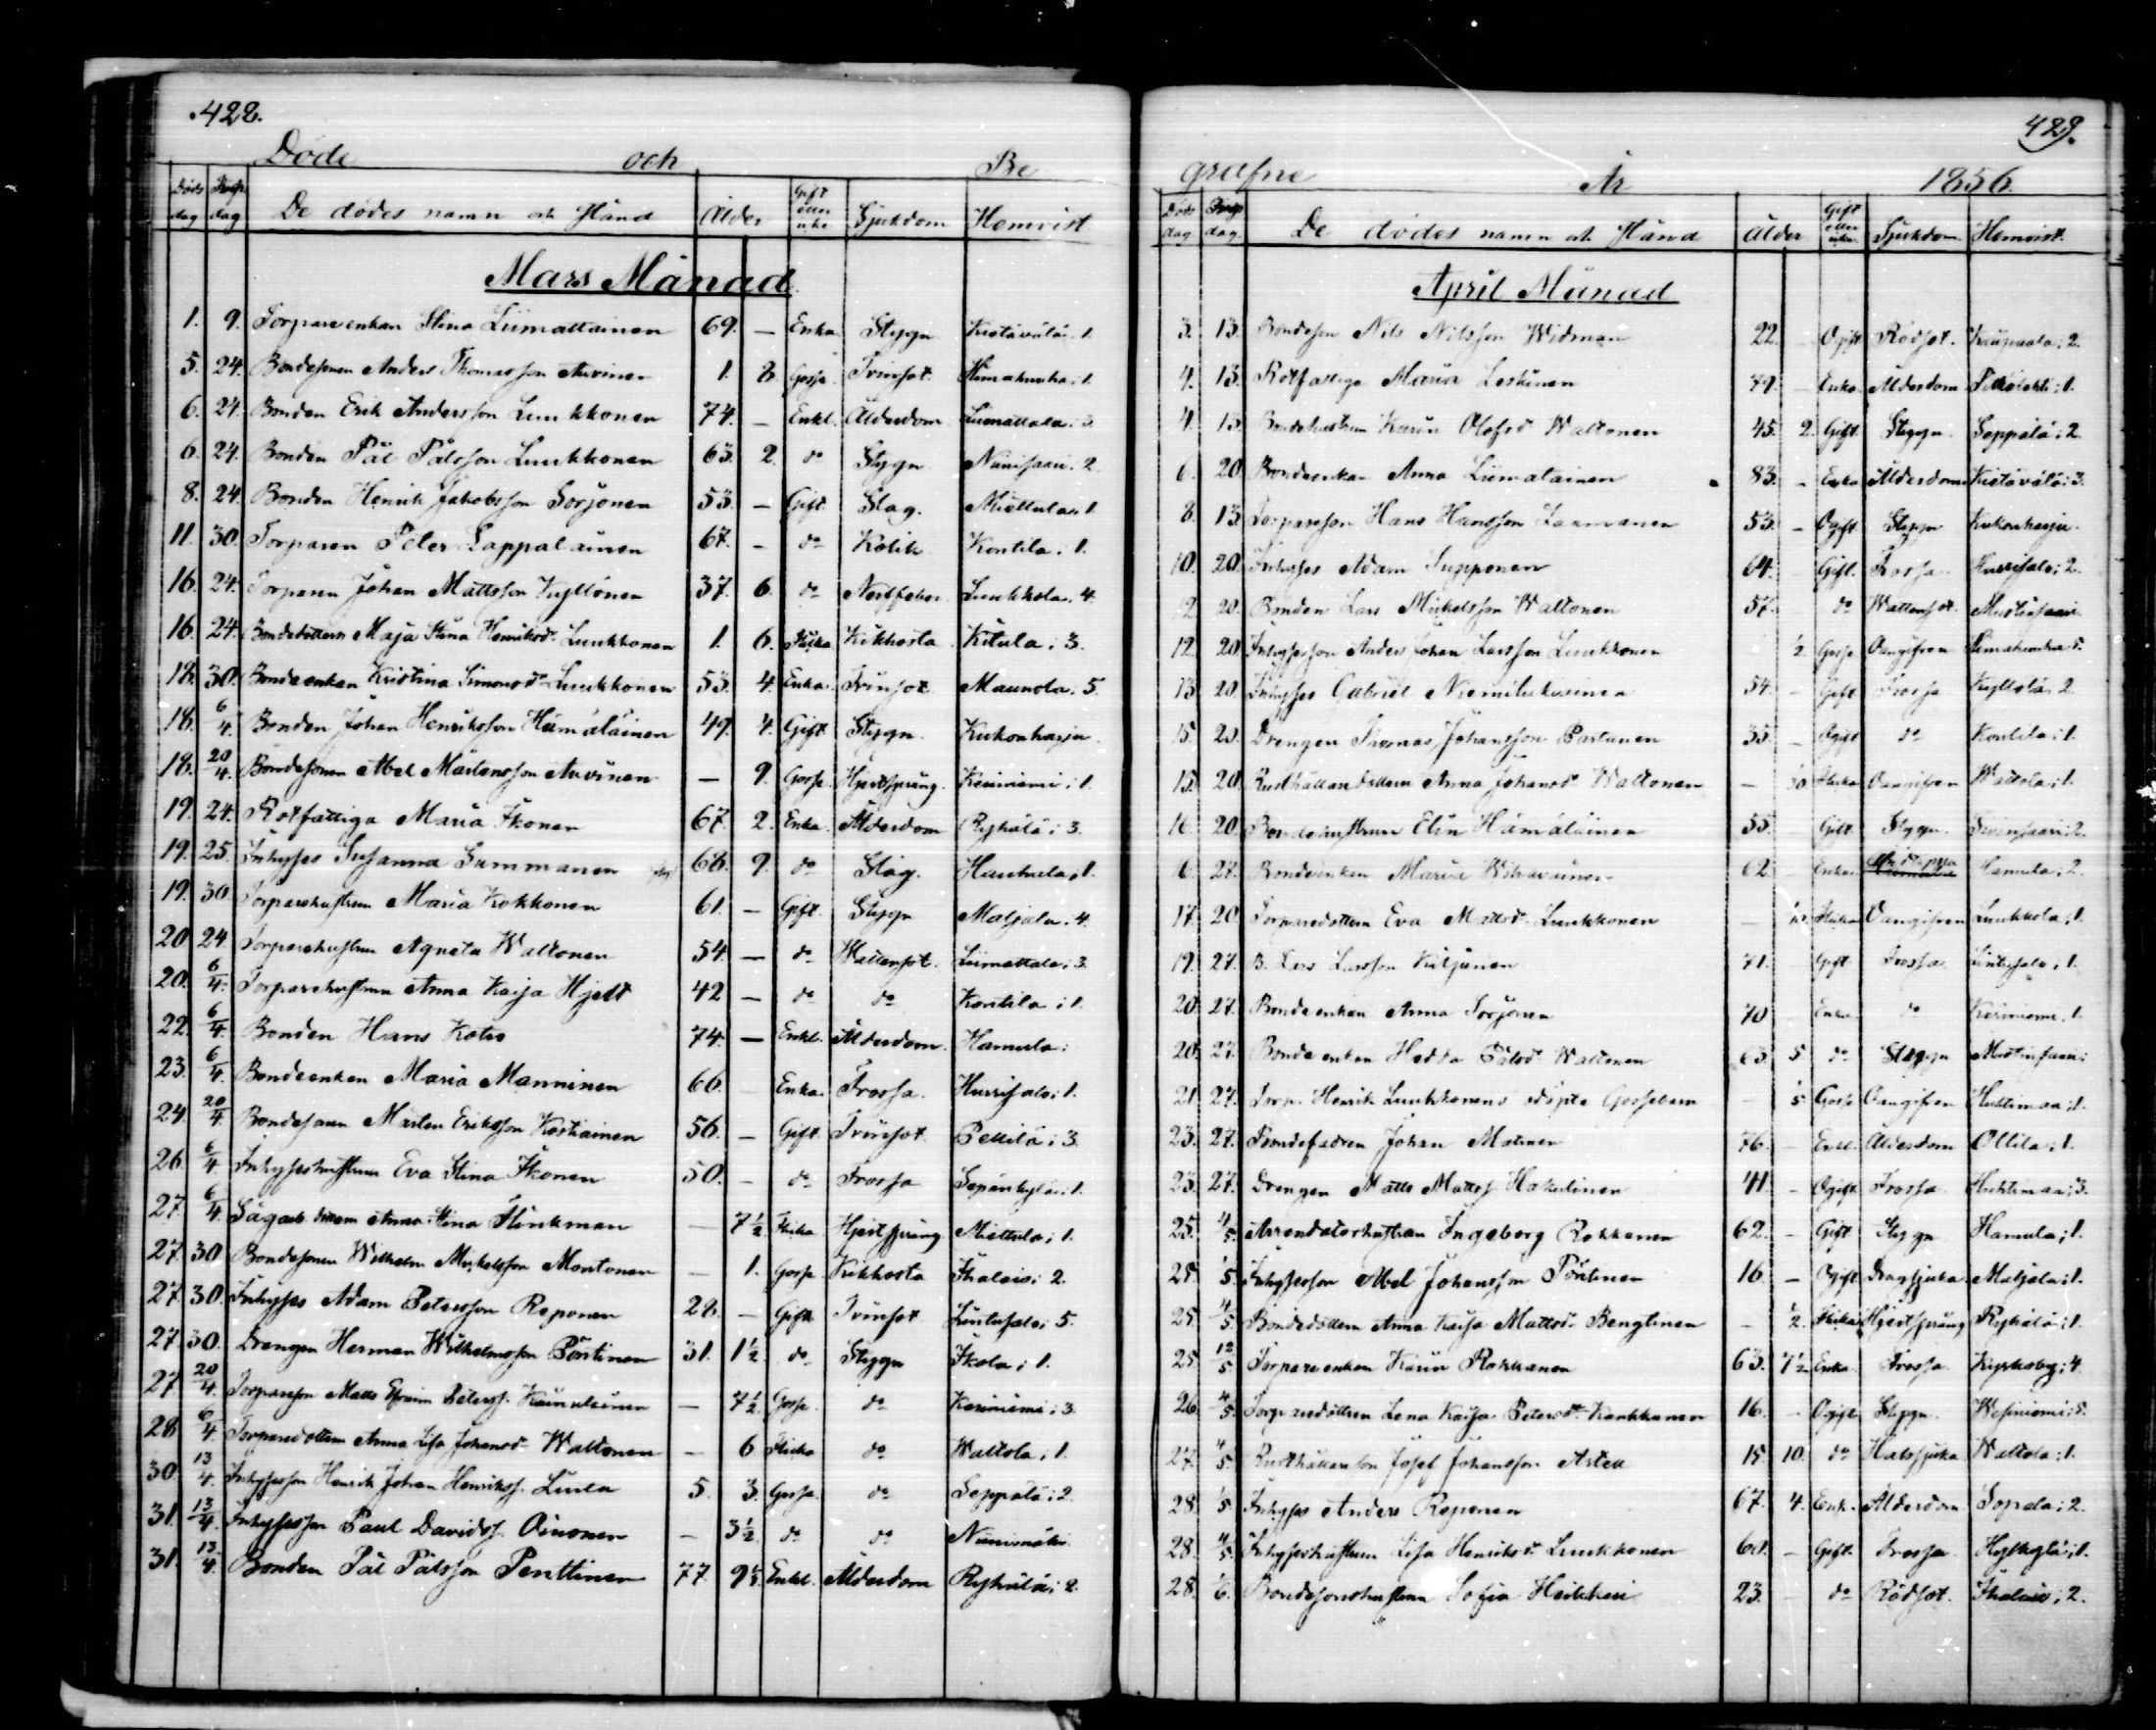 422.
Döde och Be
Döds dag Begr. dag De dödes namn och stånd Ålder Gift eller icke Sjukdom Hemvist
Mars Månad
1. 9. Torpareenkan Stina Liimattainen 69. — Enka Stygn Kistävälä: 1.
5. 24. Bondesonen Anders Thomasson Arvinen 1. 8 Gosse Tvinsot :1.
6. 24. Bonden Erik Andersson Luukkonen 74. — Enkl. Ålderdom Liimattala: 3.
6. 24. Bonden Pål Pålsson Luukkonen 63 2. do Stygn Niinisaari. 2.
8. 24. Bonden Henrik Jakobsson Sorjonen 53. — Gift Slag. Miettula: 1
11. 30. Torparen Peter Lappalainen 67. - do Kolik Kontila: 1.
16. 24. Torparen Johan Mattsson Kyllönen 37. 6. do Nerffeber Luukkola. 4.
16. 24. Bondedottern Maja Stina Henriksdr Luukkonen 1. 6. Flicka Kikhosta Kitula: 3.
18. 30. Bondeenkan Kristina Simonsdr Luukkonen 53. 4. Enka Tvinsot Maunola: 5.
18. 6/4. Bonden Johan Henriksson Hämäläinen 49. 4. Gift Stygn Kukonharju
18. 20/4. Bondesonen Abel Mårtensson Arvinen — 9. Gosse Hjertsprång Keriniemi: 1.
19. 24. Rotfattiga Maria Ikonen 67. 2. Enka Ålderdom Ryhälä: 3.
19. 25. Inhyses Susanna Summanen 68. 9. do Slag. Haukula: 1.
19. 30. Torparehustrun Maria Kokkonen 61. — Gift Stygn Maljala. 4.
20 24. Torparehustrun Agneta Waltonen 54. — do Wattensot. Liimattala: 3.
20. 6/4. Torparehustrun Anna Kaija Hjelt 42 — do do Kontila: 1.
22. 6/4. Bonden Hans Kotro 74. — Enkl. Ålderdom Hamula:
23. 6/4. Bondeenkan Maria Manninen 66. Enka Frossa. Hurrisalo: 1.
24. 20/4. Bondesonen Mårten Eriksson Koskiainen 56. — Gift Tvinsot Pellilä: 3.
26. 6/4. Inhyseshustrun Eva Stina Ikonen 50. - do Frossa Sepänkylä: 1.
27. 6/4. Anna Stina Flinkman — 7½ Flicka Hjertsprång Miettula: 1.
27. 30 Bondesonen Wilhelm Mickelsson Montonen — 1. Gosse Kikhosta Ihalais: 2.
27. 30. Inhyses Adam Petersson Reponen 28. — Gift Tvinsot Lintusalo: 5.
27. 30. Drengen Herman Wilhelmsson Pöntinen 31. 1½ do Stygn Ikola: 1.
27. 20/4. Torpareson Matts Efraim Peterss. Kainulainen — 7½ Gosse do Keriniemi: 3.
28 6/4. Torparedottern Anna Lisa Johansdr Waltonen — 6 Flicka do Waltola: 1.
30. 13/4. Inhysesson Henrik Johan Henrikss. 5. 3. Gosse do Seppälä: 2.
31. 13/4. Inhysesson Paul Davidss. Oinonen — 3½ do do Niinimäki
31. 13/4. Bonden Pål Pålsson Penttinen 77. 9½ Enkl. Ålderdom Ryhälä: 2.
429.
grafne År 1856.
Döds dag Begr. dag. De dödes namn och stånd ålder Gift eller icke Sjukdom Hemvist.
April Månad
3. 13. Bondeson Nils Nilsson Widman 22. Ogift Rödsot. :2.
4. 13. Rotfattiga Maria Leskinen 79. - Enka Ålderdom Pitkälahti: 1.
4. 13. Bondehustrun Karin Olofsdr Waltonen 45. 2. Gift Stygn Seppälä: 2.
6. 20. Bondeenkan Anna Liimatainen 83. - Enka Ålderdom Kistävälä: 3.
8. 13. Torpareson Hans Hansson Laamanen 53. - Ogift Stygn Kukonharju
10. 20. Inhyses Adam Supponen 64. Gift. Frossa. Hurrisalo: 2.
12. 20. Bonden Lars Mickelsson Waltonen 57. do Wattensot. Mustinsaari
12. 20 Inhysesson Anders Johan Larsson Luukkonen ½ Gosse Oangifven 5.
13. 20. Inhyses Gabriel Niemilukainen 54. - Gift Frossa Kyllölä. 2.
15. 20. Drengen Thomas Johansson Partanen 35. _ Ogift do Kontila: 1.
15. 20. Rusthållaredottern Anna Johansdr Waltonen — Flicka Oangifven Waltola: 1.
16. 20. Bondehustrun Elin Hämäläinen 55. Gift Stygn :2.
16. 27. Bondeenkan Maria 62. — Enka Hamula: 2.
17. 20 Torparedottern Eva Mattsdr. Luukkonen — Flicka Oangifven Luukkola: 1.
19. 27. B. Lars Larsson Kiljunen 71. Gift Frossa Lintusalo: 1.
20. 27. Bondeenkan Anna Sorjonen 70 Enka do Keriniemi. 1.
20. 27. Bondeenkan Hedda Pålsdr Waltonen 63. 5 do Stygn Mustinsaari:
21 27. Torp. Henrik Luukkonens odöpte Gossebarn — Gosse Oangifven Huttimaa: 1.
23. 27. Bondefadren Johan Matinen 76. - Enkl. Ålderdom Ollila: 1.
23. 27. Drengen Matts Mattss. Hakulinen 41. - Ogift Frossa Huttimaa: 3.
25. 4/5. Arrendatorhustrun Ingeborg Rokkanen 62. - Gift Stygn Hamula: 1.
25. Inhysesson Abel Johansson Pöntinen 16. — Ogift Dragsjuka Maljala: 1.
25. 4/5 Bondedottern Anna Kaisa Mattsdr. Bengtinen — ½. Flicka Hjertsprång Ryhälä: 1.
25. 12/5 Torpareenkan Karin Rokkanen 63. 7½ Enka Frossa Kyrkoby: 4.
26. 4/5. Torparedottern Lena Kaisa Petersdr Kankkunen 16. - Ogift Stygn Wesiniemi: 5.
27. 4/5. Rusthållareson Josef Johansson Astell 15. 10. do Halssjuka Waltola: 1.
28. Inhyses Anders Reponen 67. 4. Enk. Ålderdom Sopala: 2.
28. 4/5. Inhyseshustrun Lisa Henriksdr Luukkonen 60. - Gift. Frossa :1.
28. Bondesonshustrun Sofia Heikkei 23. - do Rödsot. Ihalais: 2.